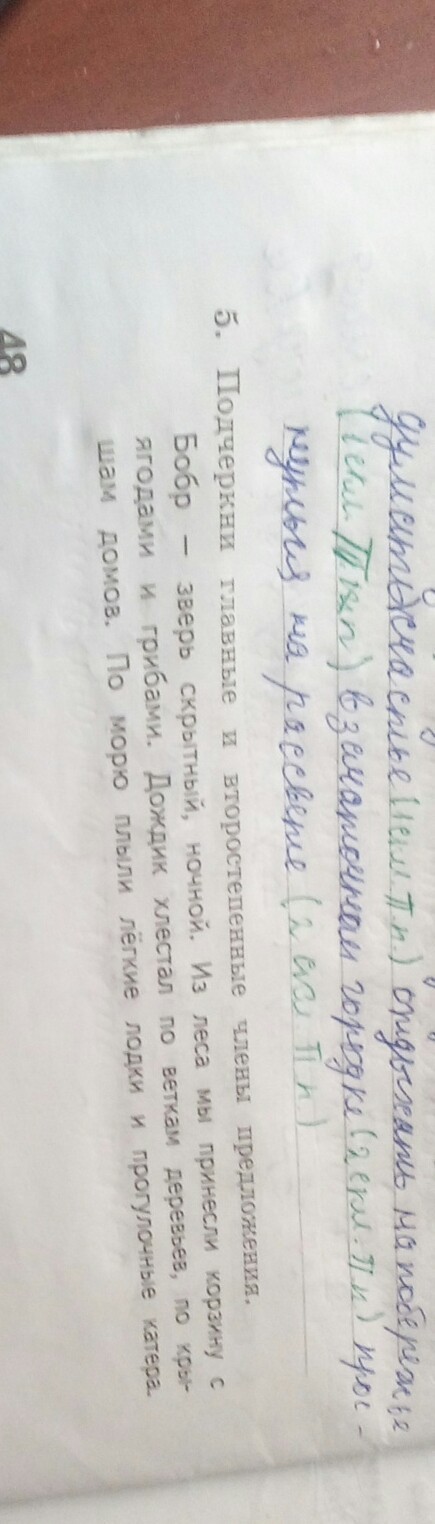 думать о счастье (1 скл. П.п.) отдыхать на побережье
в занаточном городке (2 скл. П.п.) прос-
нулись на рассвете (2 скл. П.п.)
5. Подчеркни главные и второстепенные члены предложения.
Бобр — зверь скрытный, ночной. Из леса мы принесли корзину с
ягодами и грибами. Дождик хлестал по веткам деревьев, по кры-
шам домов. По морю плыли лёгкие лодки и прогулочные катера.
48